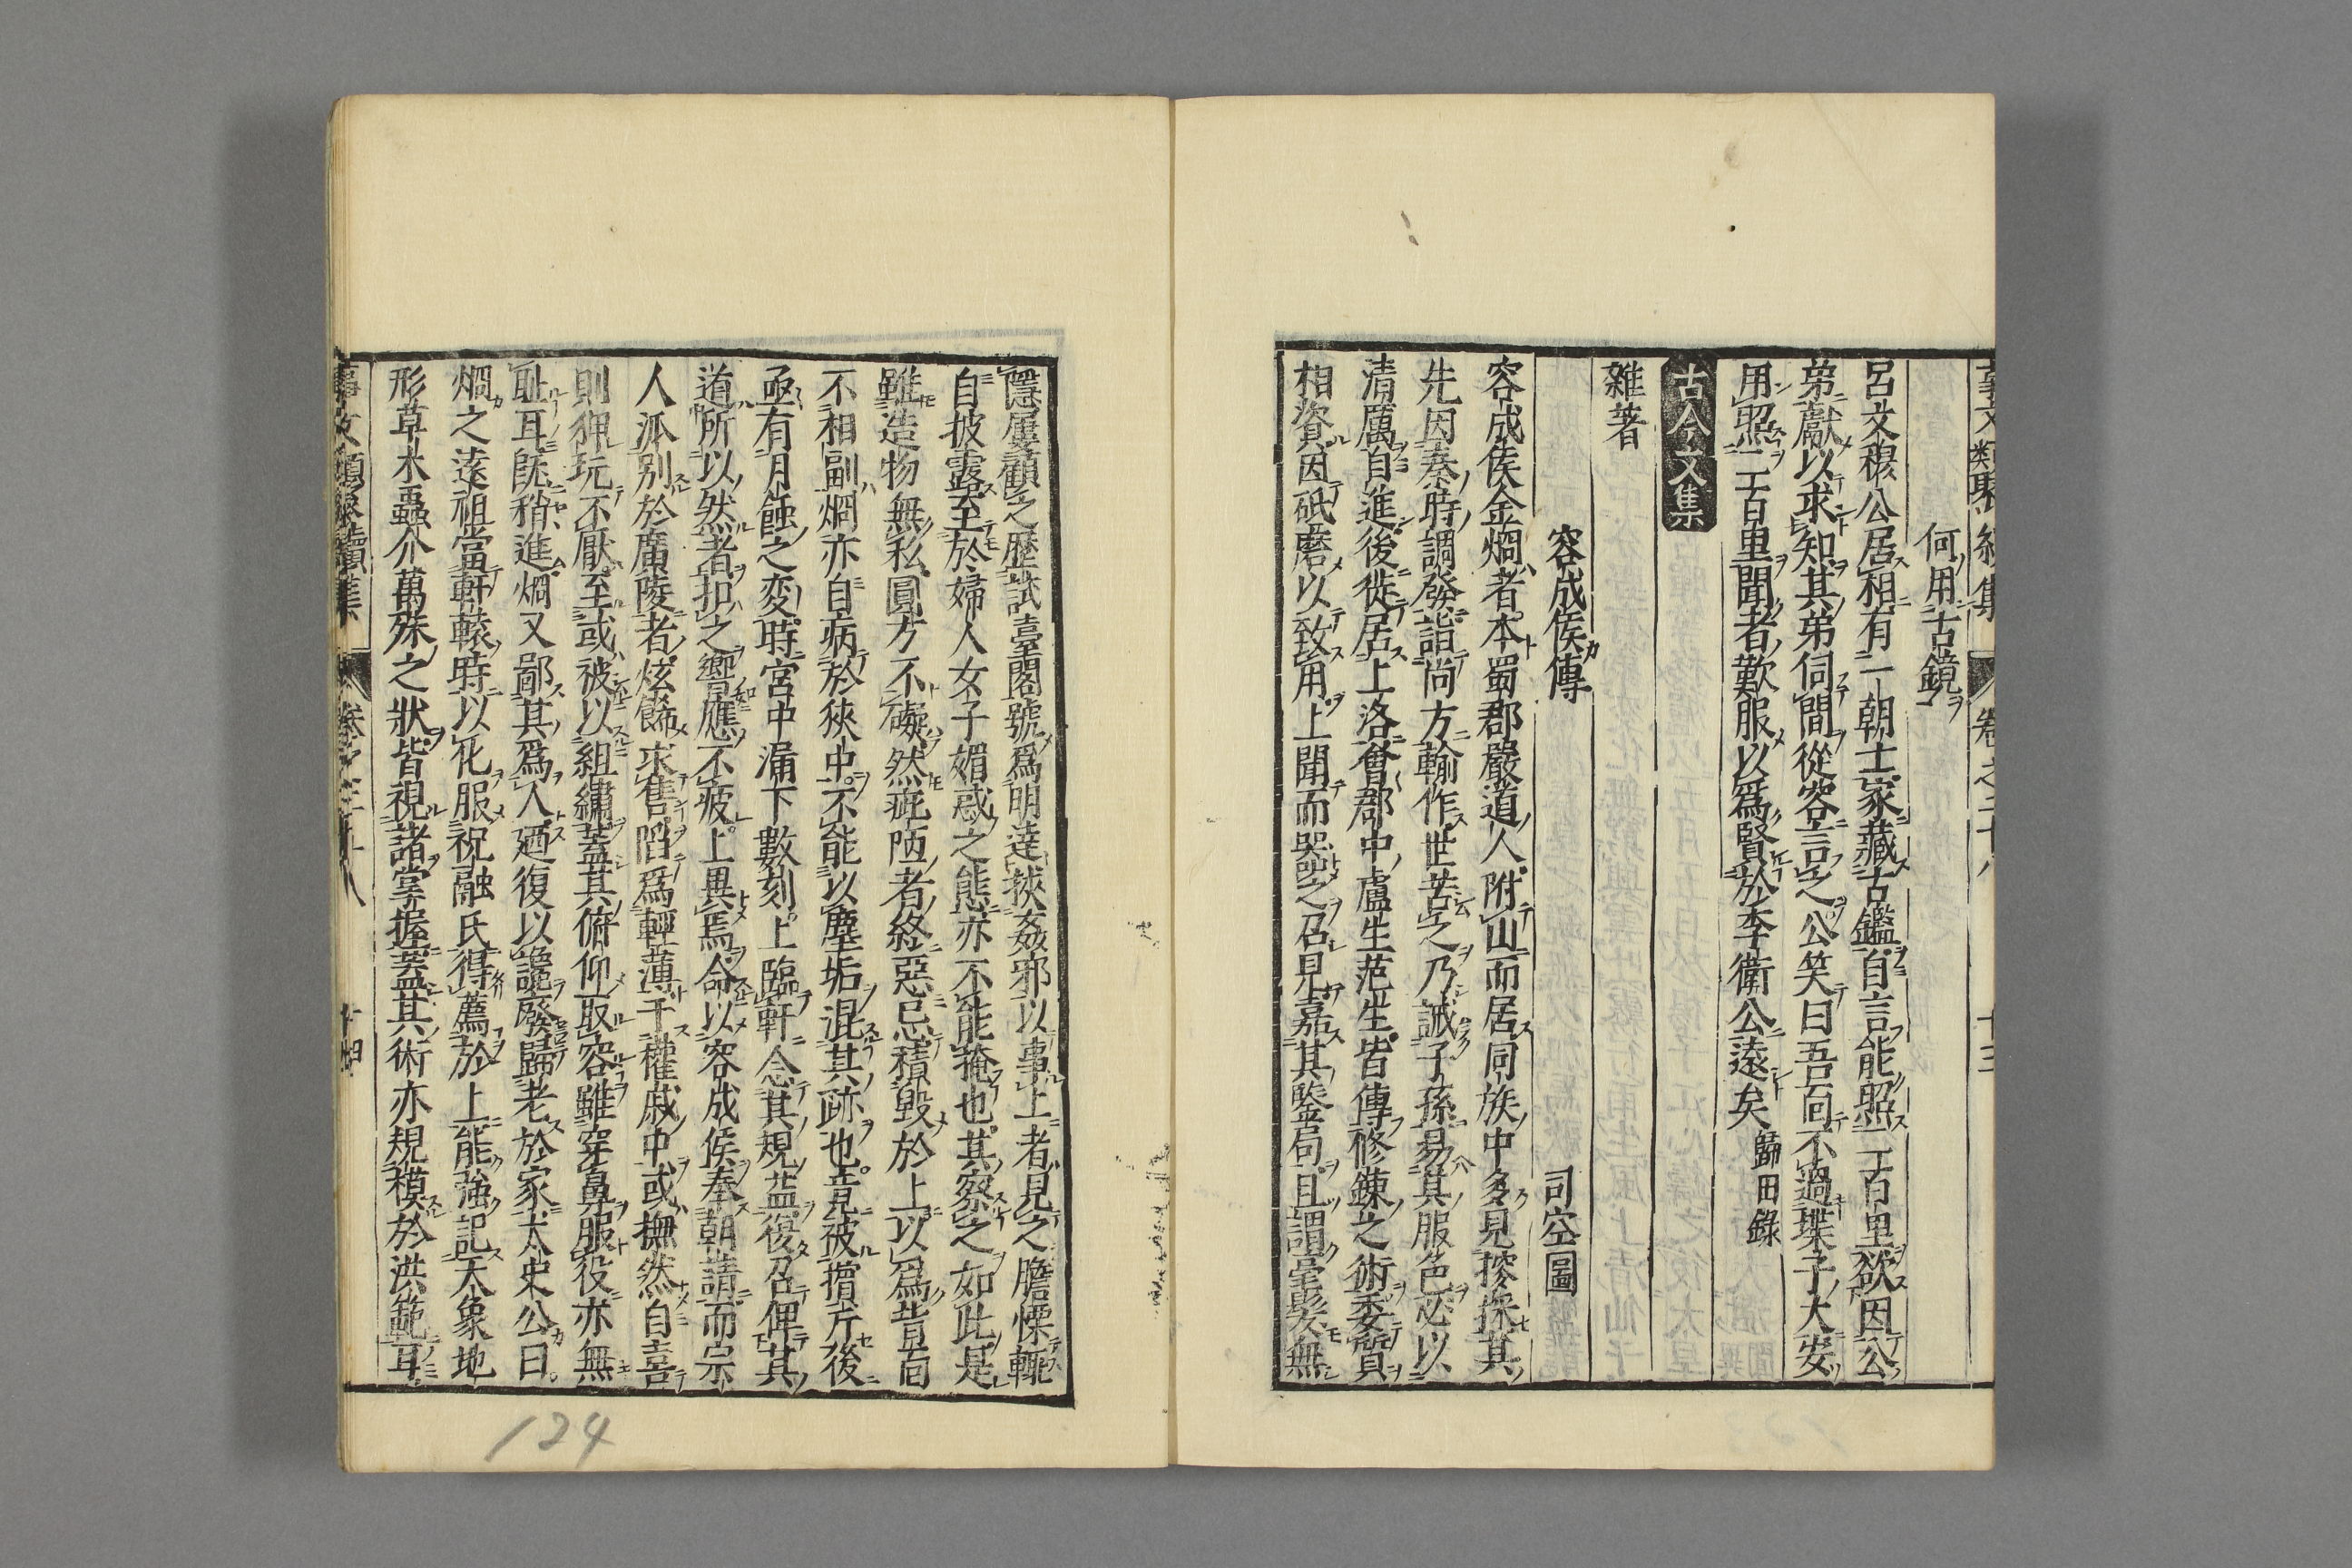 事文類聚續集 卷之二十八 十三
何用古鏡
呂文穆公居相有一朝士家藏古鑑自言能照二百里欲因公
弟獻以求知其弟伺間從容言之公笑曰吾面不過楪子大安
用照二百里聞者歎服以爲賢於李衛公遠矣 歸田錄
古今文集
雜著
容成侯傳 司空圖
容成侯金烱者本蜀郡嚴道人附山而居同族中多見搜採其
先因秦時調發詣尚方輸作世苦之乃誡子孫易其服色必以
清厲自進後徙居上洛會郡中盧生范生皆傳修鍊之術委質
相資因砥磨以致用上聞而器之召見嘉其鑒局且謂毫髮無
隱屢顧之歷試臺閣號爲明達挾姦邪以事上者見之膽慄輙
自披露至於婦人女子媚惑之態亦不能掩也其察之如此是
雖造物無私圓方不礙然疵陋者終惡忌積毀於上以爲背面
不相副烱亦自病於狹中不能以塵垢混其跡也竟被擯斥後
亟有月蝕之変時宮中漏下數刻上臨軒念其規益復召俾其
道所以然者扣之響應不疲上異焉命以容成侯奉朝請而宗
人派别於廣陵者炫飾求售陷爲輕薄于權戚中或撫然自喜
則狎玩不厭至或被以組繡葢其俯仰取容雖穿鼻服役亦無
耻耳旣稍進烱又鄙其爲人廼復以讒廢歸老於家太史公曰
烱之遠祖當軒轅時以化服祝融氏得薦於上能強記大象地
形草木蟲介萬殊之狀皆視諸掌握葢其術亦規模於洪範耳
事文類聚續集 卷之二十八 十四
124